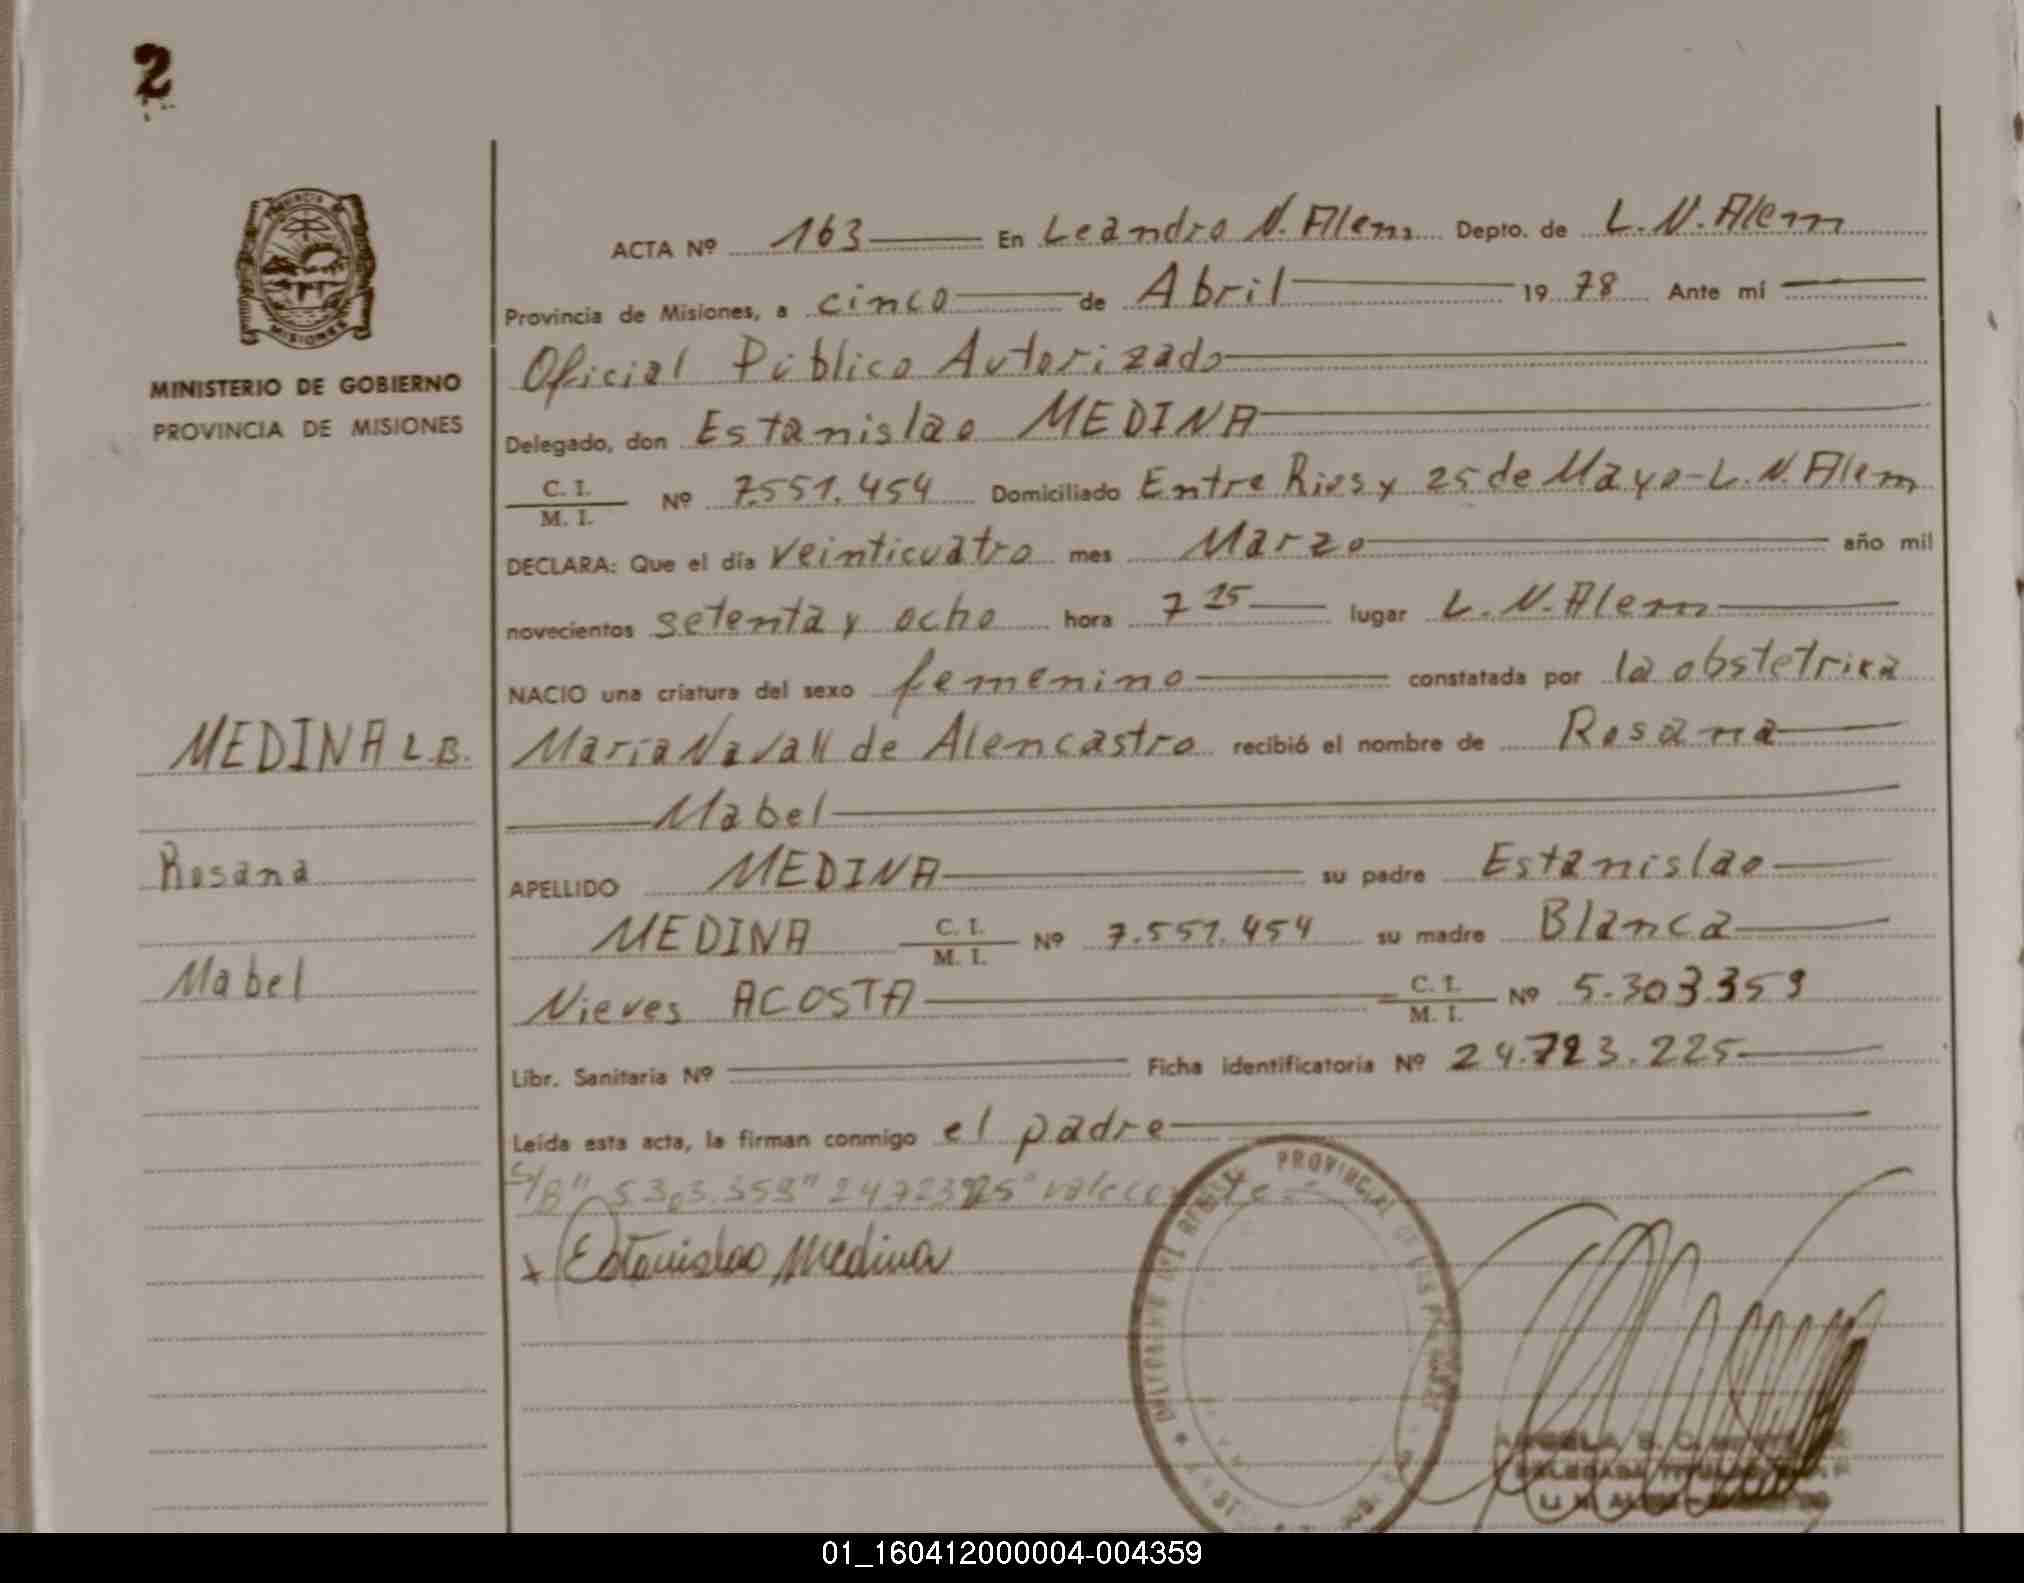 2
PROVINCIA DE
MISIONES
MINISTERIO DE GOBIERNO
PROVINCIA DE MISIONES
MEDINA L.B.
Rosana
Mabel
ACTA Nº 163 En Leandro N. Alem, Depto. de L. N. Alem
Provincia de Misiones, a cinco de Abril 19 78 Ante mí
Oficial Público Autorizado
Delegado, don Estanislao MEDINA
C. I. / M. I. Nº 7.551.454 Domiciliado Entre Rios y 25 de Mayo - L. N. Alem
DECLARA: Que el día veinticuatro mes Marzo año mil
novecientos setenta y ocho hora 7 15 lugar L. N. Alem
NACIO una criatura del sexo femenino constatada por la obstetrica
Maria de Alencastro recibió el nombre de Rosana
Mabel
APELLIDO MEDINA su padre Estanislao
MEDINA C. I. / M. I. Nº 7.551.454 su madre Blanca
Nieves ACOSTA C. I. / M. I. Nº 5.303.359
Libr. Sanitaria Nº Ficha identificatoria Nº 24.723.225
Leída esta acta, la firman conmigo el padre
S/B" 5.303.359" 24.723.225"
x Estanislao Medina
PROVINCIAL DE LAS PERSONAS
01_160412000004-004359